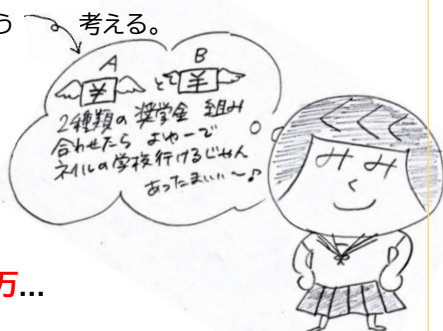 う 考える。
A B
¥ と ¥
2種類の 奨学金 組み
合わせたら よゆーで
ネイルの学校行けるじゃん
あったまいい〜♪
みみ
万...